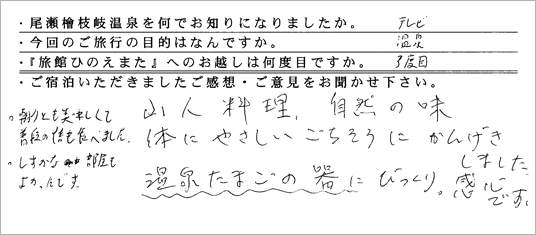 ・尾瀬檜枝岐温泉を何でお知りになりましたか。 テレビ
・今回のご旅行の目的はなんですか。 温泉
・『旅館ひのえまた』へのお越しは何度目ですか。 3度目
・ご宿泊いただきましたご感想・ご意見をお聞かせ下さい。
山人料理、自然の味
体にやさしいごちそうにかんげき
しました。
温泉たまごの器にびっくり。感心
です。
○朝夕とも美味しくて
普段の倍も食べました。
○しずかな部屋も
よかったです。